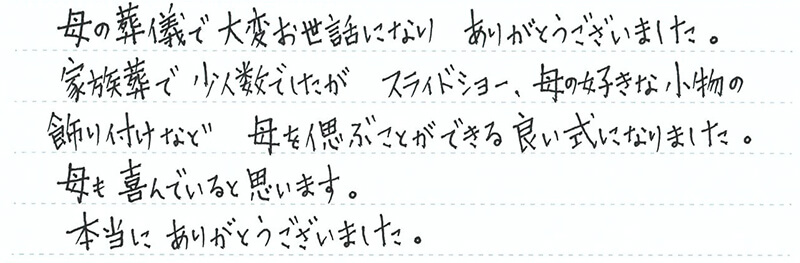 母の葬儀で大変お世話になり ありがとうございました。
家族葬で少人数でしたが スライドショー、母の好きな小物の
飾り付けなど 母を偲ぶことができる良い式になりました。
母も喜んでいると思います。
本当にありがとうございました。